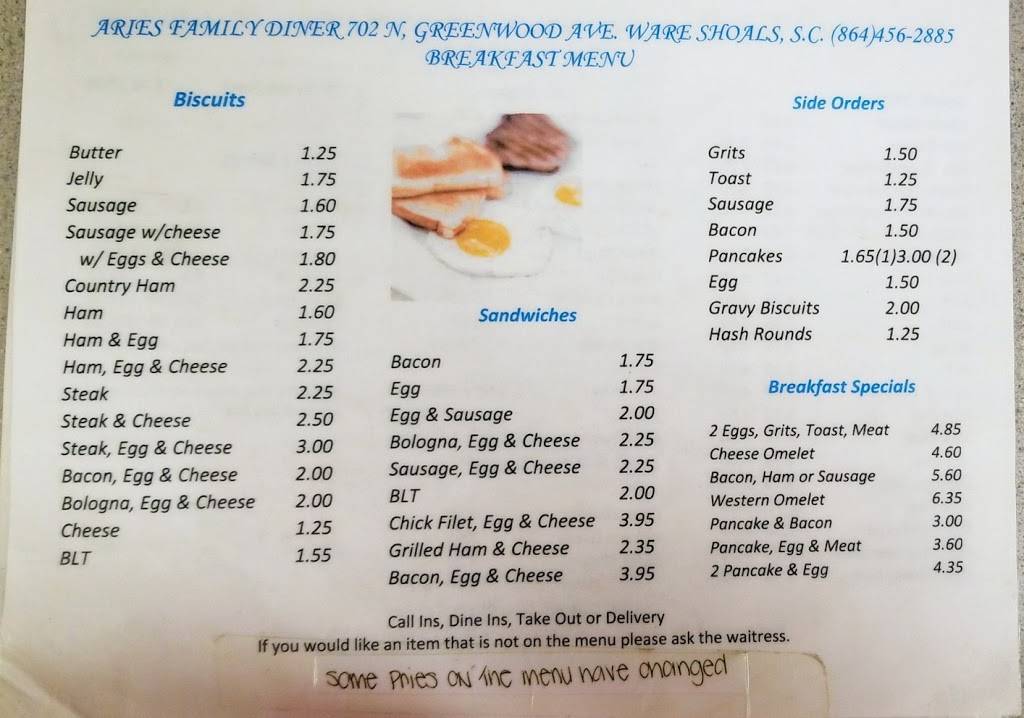 ARIES FAMILY DINER 702 N, GREENWOOD AVE. WARE SHOALS, S.C. (864)456-2885
BREAKFAST MENU
Biscuits
Butter 1.25
Jelly 1.75
Sausage 1.60
Sausage w/cheese 1.75
w/ Eggs & Cheese 1.80
Country Ham 2.25
Ham 1.60
Ham & Egg 1.75
Ham, Egg & Cheese 2.25
Steak 2.25
Steak & Cheese 2.50
Steak, Egg & Cheese 3.00
Bacon, Egg & Cheese 2.00
Bologna, Egg & Cheese 2.00
Cheese 1.25
BLT 1.55
Sandwiches
Bacon 1.75
Egg 1.75
Egg & Sausage 2.00
Bologna, Egg & Cheese 2.25
Sausage, Egg & Cheese 2.25
BLT 2.00
Chick Filet, Egg & Cheese 3.95
Grilled Ham & Cheese 2.35
Bacon, Egg & Cheese 3.95
Side Orders
Grits 1.50
Toast 1.25
Sausage 1.75
Bacon 1.50
Pancakes 1.65(1)3.00 (2)
Egg 1.50
Gravy Biscuits 2.00
Hash Rounds 1.25
Breakfast Specials
2 Eggs, Grits, Toast, Meat 4.85
Cheese Omelet 4.60
Bacon, Ham or Sausage 5.60
Western Omelet 6.35
Pancake & Bacon 3.00
Pancake, Egg & Meat 3.60
2 Pancake & Egg 4.35
Call Ins, Dine Ins, Take Out or Delivery
If you would like an item that is not on the menu please ask the waitress.
some Pries on the menu have changed